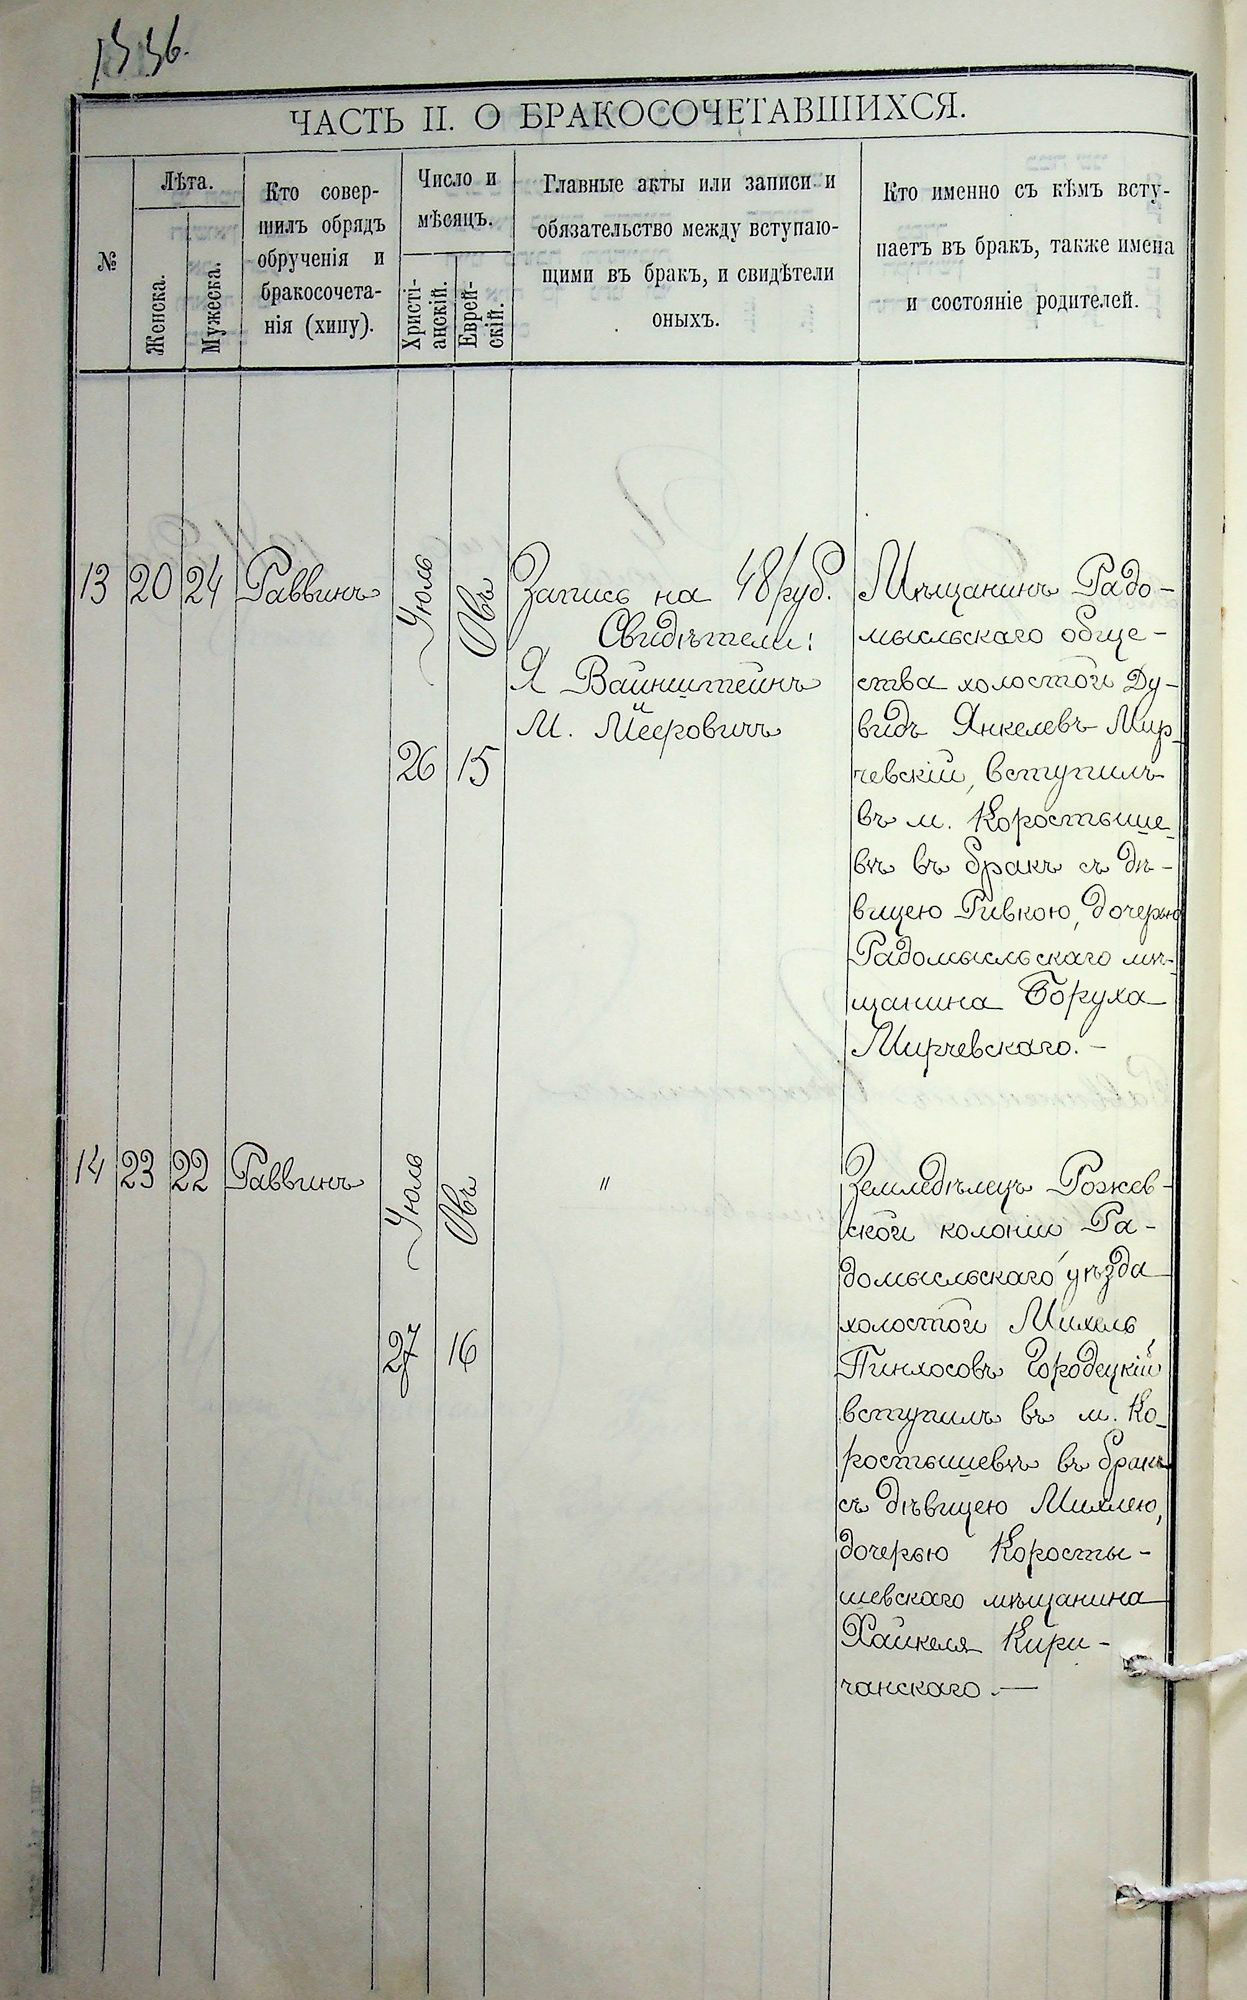 1336.
ЧАСТЬ II. О БРАКОСОЧЕТАВШИХСЯ.
№
Лѣта.
Женска.
Мужеска.
Кто совер-
шилъ обрядъ
обрученія и
бракосочета-
нія (хипу).
Число и
мѣсяцъ.
Христі-
анскій.
Еврей-
скій.
Главные акты или записи и
обязательство между вступаю-
щими въ бракъ, и свидѣтели
оныхъ.
Кто именно съ кѣмъ всту-
паетъ въ бракъ, также имена
и состояніе родителей.
13
20
24
Раввинъ
Июль
26
Овъ
15
Запись на 48 руб.
Свидѣтели:
Я Вайнштейнъ
М. Мееровичъ
Мѣщанинъ Радо-
мысльскаго обще-
ства холостой Ду-
видъ Янкелевъ Мир-
чевскій, вступилъ
въ м. Коростыше-
вѣ въ бракъ съ дѣ-
вицею Ривкою, дочерью
Радомысльскаго мѣ-
щанина Боруха
Мирчевскаго.—
14
23
22
Раввинъ
Июль
27
Овъ
16
"
Земледѣлецъ Рожев-
ской колоніи Ра-
домысльскаго уѣзда
холостой Михель
Пинхосовъ Городецкій
вступилъ въ м. Ко-
ростышевѣ въ бракъ
съ дѣвицею Михлею,
дочерью Коросты-
шевскаго мѣщанина
Хайкеля Кири-
чанскаго.—